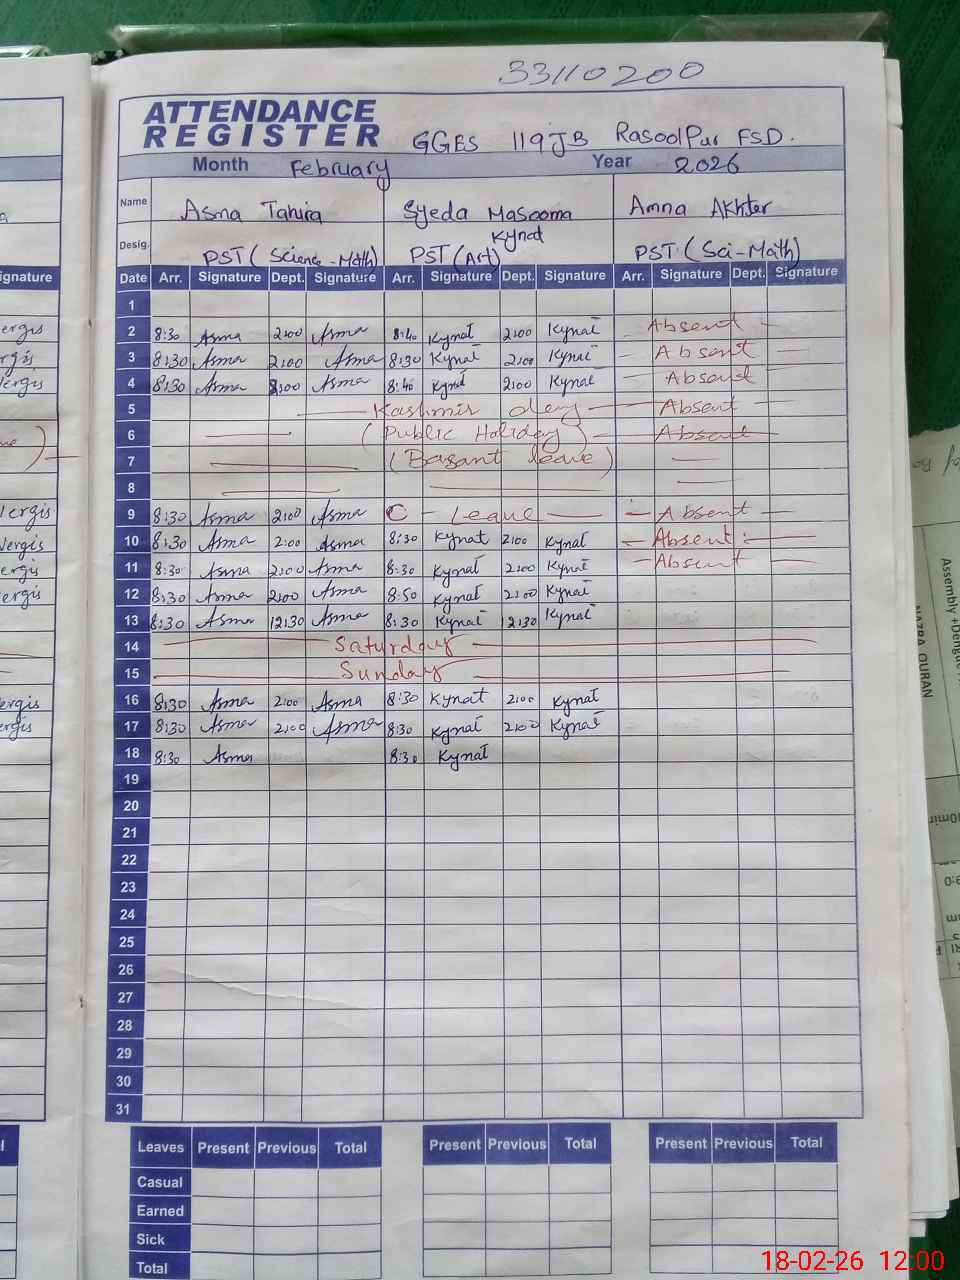 33110200
ATTENDANCE
REGISTER GGES 119JB RasoolPur FSD.
Month February Year 2026
Name Asma Tahira Syeda Masooma Kynat Amna Akhter
Desig. PST (Science-Math) PST (Art) PST (Sci-Math)
Date Arr. Signature Dept. Signature Arr. Signature Dept. Signature Arr. Signature Dept. Signature
1
2 8:30 Asma 2:00 Asma 8:40 Kynat 2:00 Kynat Absent
3 8:30 Asma 2:00 Asma 8:30 Kynat 2:00 Kynat Absent
4 8:30 Asma 2:00 Asma 8:40 Kynat 2:00 Kynat Absent
5 Kashmir day Absent
6 (Public Holiday) Absent
7 (Basant leave)
8
9 8:30 Asma 2:00 Asma C - Leave Absent
10 8:30 Asma 2:00 Asma 8:30 Kynat 2:00 Kynat Absent
11 8:30 Asma 2:00 Asma 8:30 Kynat 2:00 Kynat Absent
12 8:30 Asma 2:00 Asma 8:50 Kynat 2:00 Kynat
13 8:30 Asma 12:30 Asma 8:30 Kynat 12:30 Kynat
14 Saturday
15 Sunday
16 8:30 Asma 2:00 Asma 8:30 Kynat 2:00 Kynat
17 8:30 Asma 2:00 Asma 8:30 Kynat 2:00 Kynat
18 8:30 Asma 8:30 Kynat
19
20
21
22
23
24
25
26
27
28
29
30
31
Leaves Present Previous Total Present Previous Total Present Previous Total
Casual
Earned
Sick
Total
ignature
Assembly +Dengue
NAZRA QURAN
18-02-26 12:00